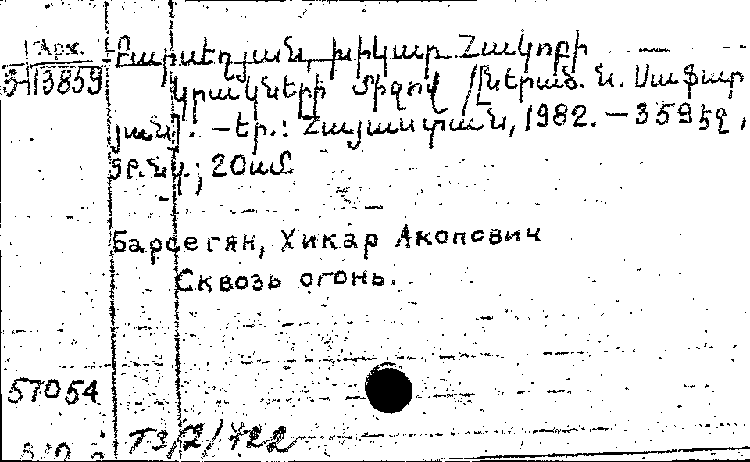 Арх.
Բարսեղյան, Խիկար Հակոբի
3-13859
Կրակների միջով /Ներած. Ն. Սաֆար
յան/. — Եր.: Հայաստան, 1982. — 359 էջ,
նկ.; 20 սմ
Барсегян, Хикар Акопович
Сквозь огонь.
57054
T3/2/722